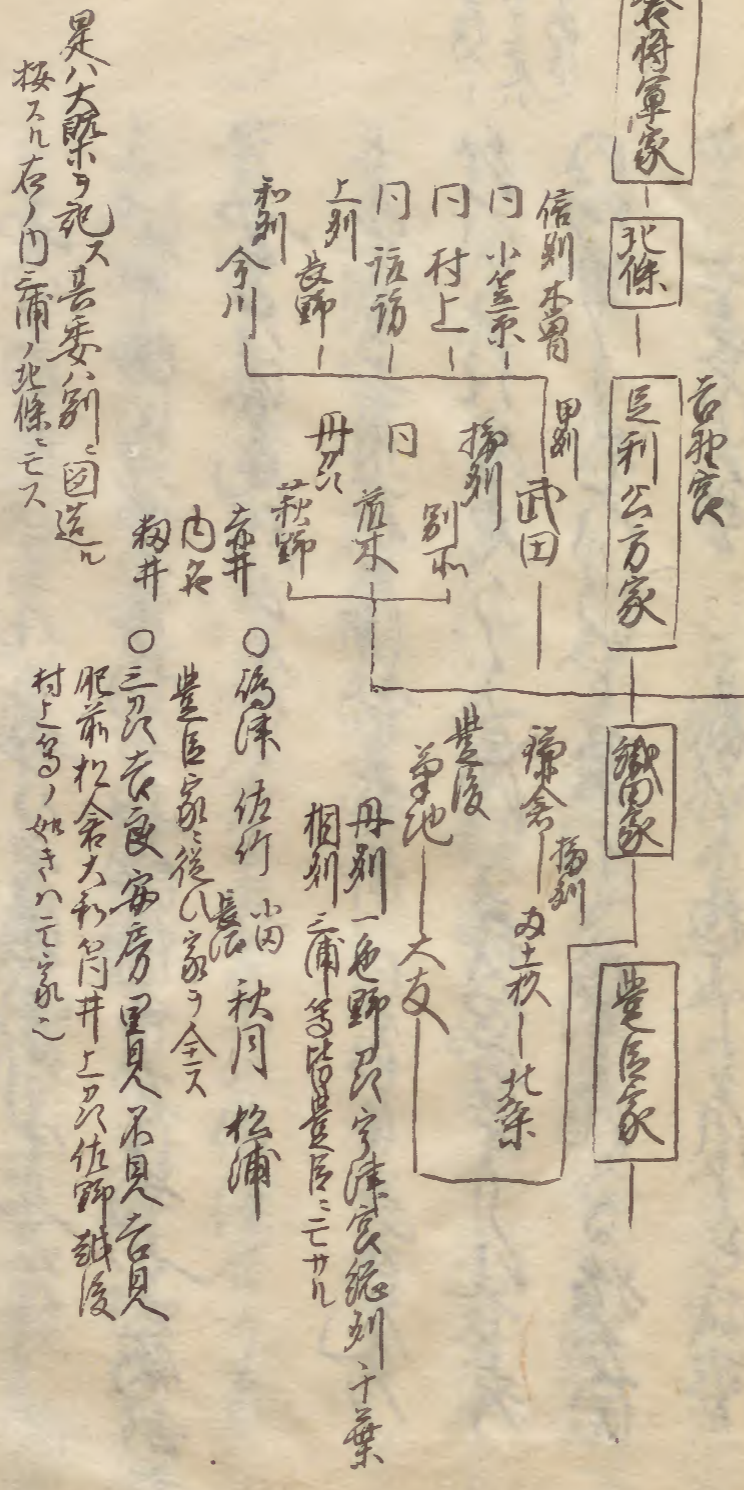 倉将軍家
北條
吉野宮
足利公方家
織田家
豊臣家
信州木曽
同 小笠原
同 村上
同 諏訪
上州 長野
和州 今川
甲州 武田
播州 別所
同
丹及 萩野
赤井
内名
籾井
鎌倉 播州 両上杦 北条
豊後
菊地 大友
丹州 一色野及宇津宮総州千葉
相州 三浦等皆豊臣ニ亡サル
○ 嶋津 佐竹 小田 秋月 松浦
豊臣家ニ従ヒ家ヲ全ス
○ 三及吉良安房里見 吉見
肥前松倉大和筒井上及佐野越後
村上等ノ如キハ亡家也
是ハ大槩ヲ記ス其委ハ別ニ図造ル
桜スル右ノ内三浦ノ北條ニ亡ス